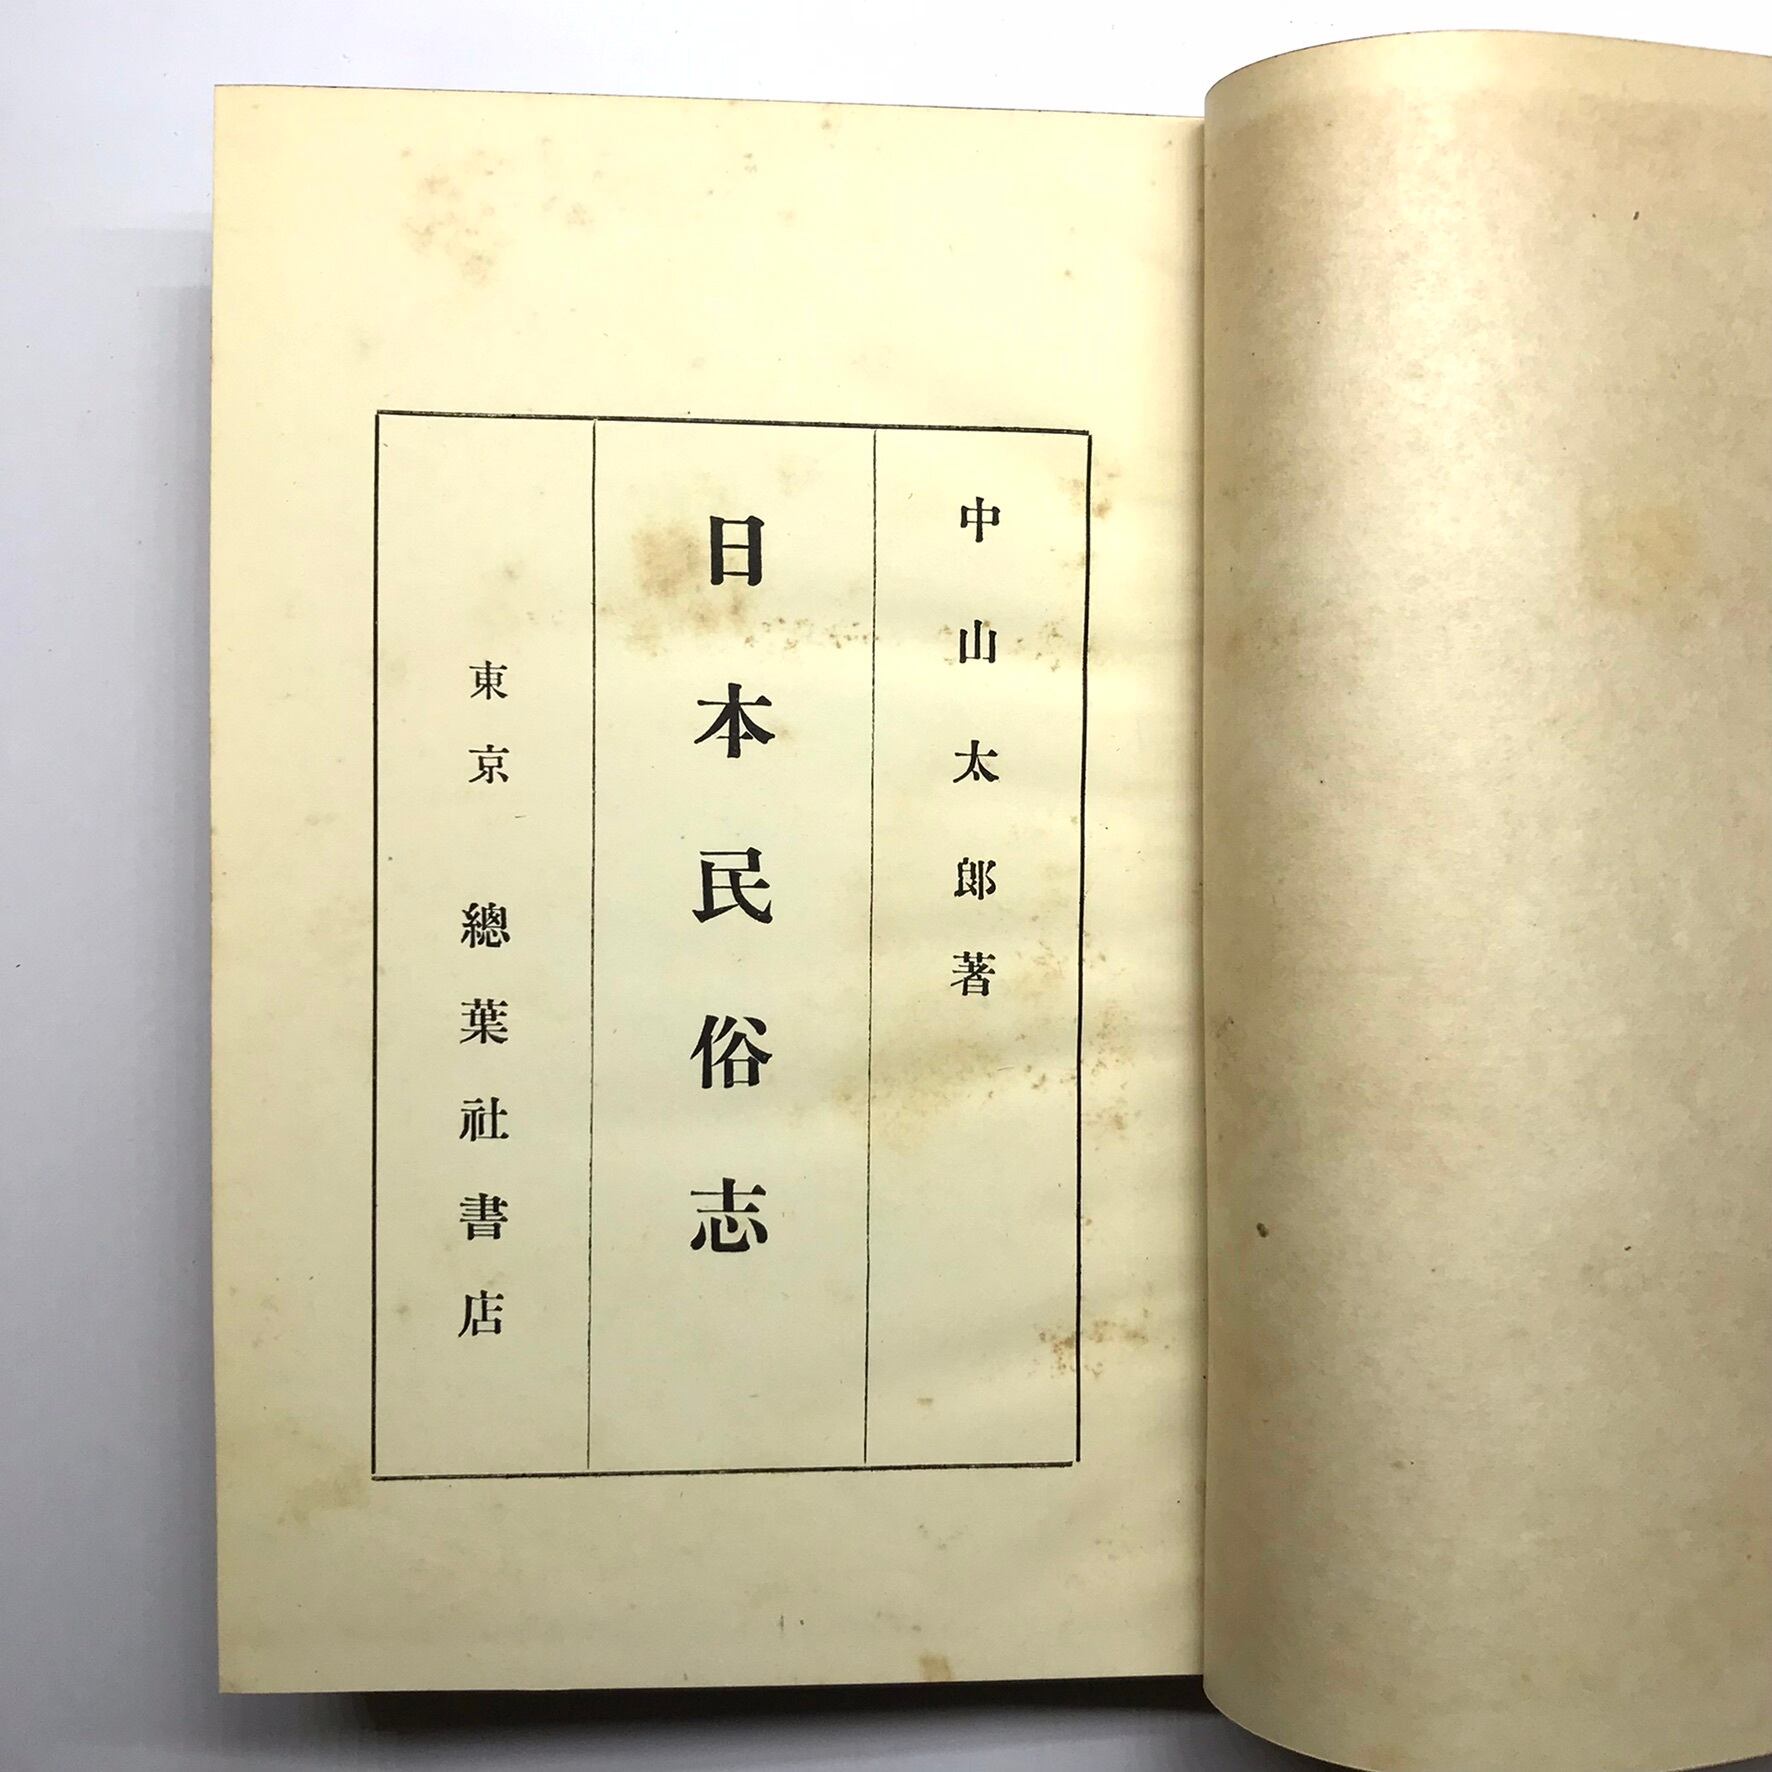 中山太郎著
日本民俗志
東京 總葉社書店